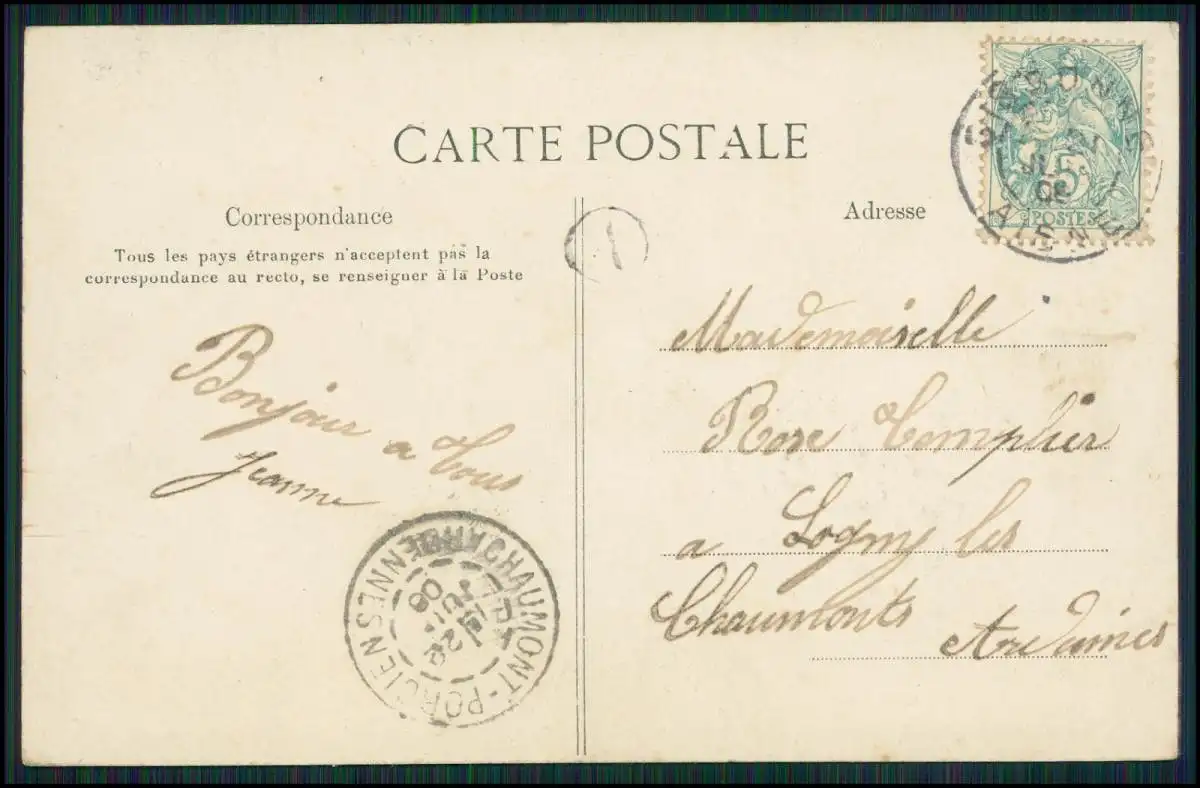 CARTE POSTALE
Correspondance
Tous les pays étrangers n'acceptent pas la
correspondance au recto, se renseigner à la Poste
Bonjour
a Tous
Jeanne
CHAUMONT-PORCIEN
ARDENNES
22
JUIL
08
1
Adresse
SISSONNE
AISNE
08
5
POSTES
Mademoiselle
Rose Templier
a Logny les
Chaumonts
Ardaines